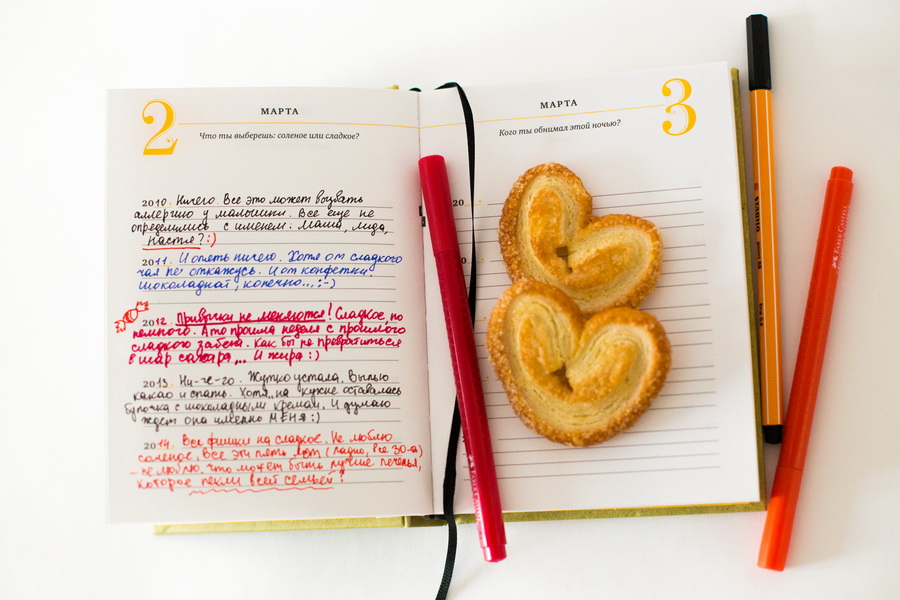 2
МАРТА
Что ты выберешь: соленое или сладкое?
2010. Ничего. Все это может вызвать
аллергию у малышки. Все еще не
определились с именем: Маша, Лида,
Настя? :)
2011. И опять ничего. Хотя от сладкого
чая не откажусь. И от конфетки.
Шоколадной, конечно...;-)
2012. Привычки не меняются! Сладкое, но
немного. А то прошла неделя с прошлого
сладкого забега. Как бы не превратиться
в шар сахара... И жира :)
2013. Ни-че-го. Жутко устала. Выпью
какао и спать. Хотя на кухне оставалась
булочка с шоколадным кремом. И думаю
ждет она именно МЕНЯ :)
2014. Все фишки на сладкое. Не люблю
соленое. Все эти пять лет (ладно, все 30-ть)
- не люблю. Что может быть лучше печенья,
которое пекли всей семьей?
МАРТА
3
Кого ты обнимал этой ночью?
20
STABILO
FABER-CASTELL